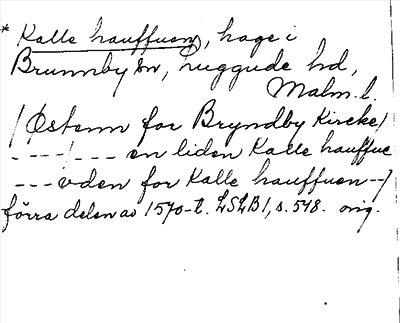 * Kalle hauffuen, hage i
Brunnby sn, Luggude hd,
Malm. l.
/Østenn for Bryndby Kircke/
----/--- en liden Kalle hauffue
--- vden for Kalle hauffuen --/
förra delen av 1570-t. LSLB1, s. 548. orig.